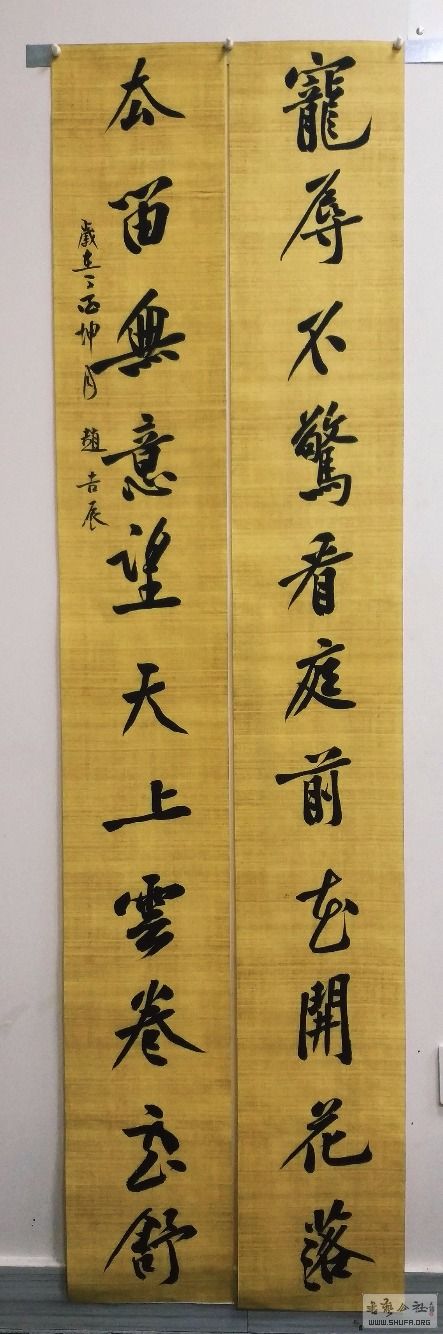 寵辱不驚看庭前花開花落
去留無意望天上雲卷雲舒
歲在丁酉坤月 趙吉辰
书艺公社
WWW.SHUFA.ORG